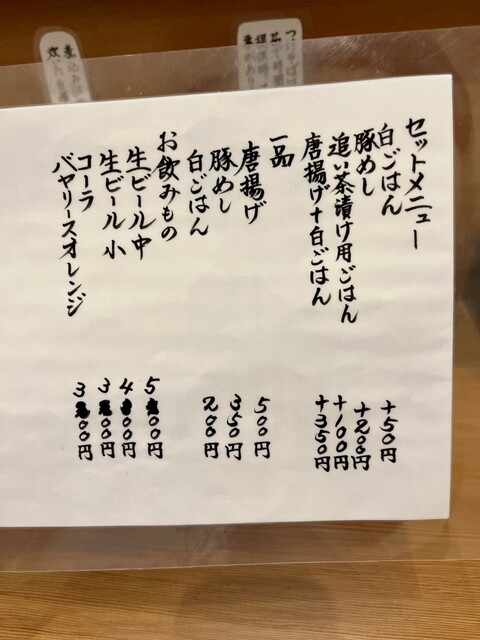 セットメニュー
白ごはん +50円
豚めし +200円
追い茶漬け用ごはん +100円
唐揚げ+白ごはん +350円
一品
唐揚げ 500円
豚めし 350円
白ごはん 200円
お飲みもの
生ビール中 500円
生ビール小 400円
コーラ 300円
バヤリースオレンジ 300円